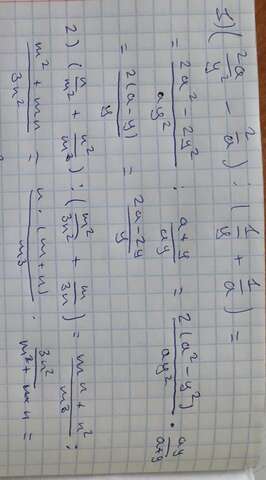 1) (2a/y² - 2/a) : (1/y + 1/a) =
= (2a² - 2y²)/(ay²) : (a+y)/(ay) = 2(a² - y²)/(ay²) · ay/(a+y)
= 2(a-y)/y = (2a-2y)/y
2) (n/m² + n²/m³) : (m²/3n² + m/3n) = (mn + n²)/m³ :
(m² + mn)/3n² = n·(m+n)/m³ · 3n²/(m²+mn) =